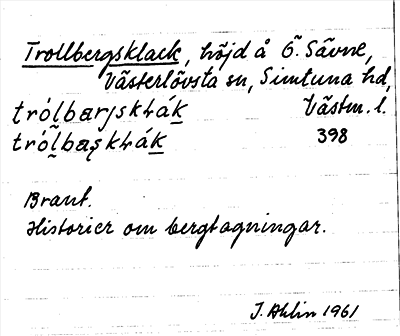 Trollbergsklack, höjd å Ö. Sävne,
Västerlövsta sn, Simtuna hd,
trólbarjskɬák Västm. l.
trólbaʂkɬák 398
Brant.
Historier om bergtagningar.
J. Ahlin 1961